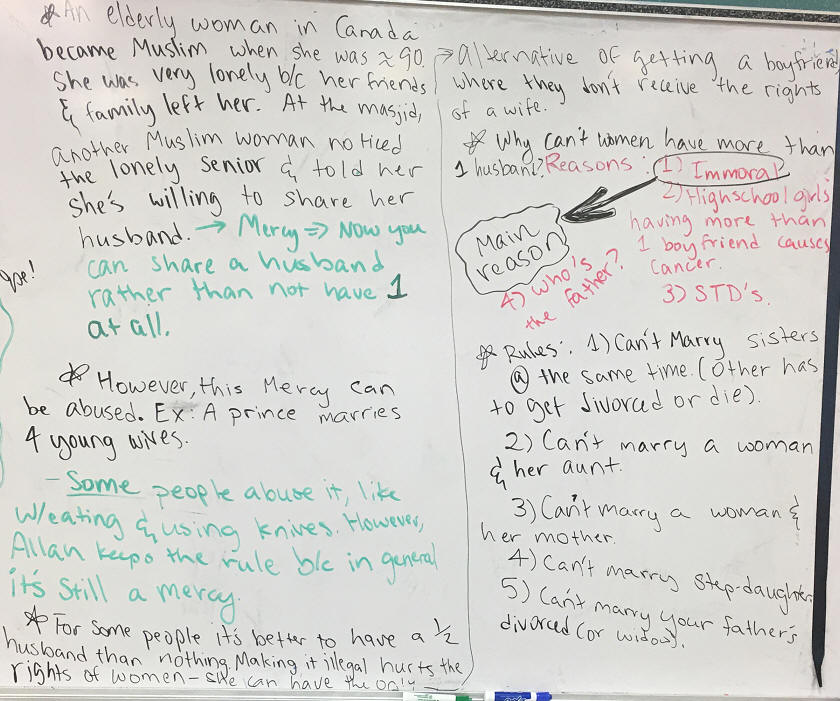 * An elderly woman in Canada
became Muslim when she was ≈ 90.
She was very lonely b/c her friends
& family left her. At the masjid,
another Muslim woman noticed
the lonely senior & told her
she's willing to share her
husband. → Mercy => Now you
can share a husband
rather than not have 1
at all.
* However, this Mercy can
be abused. Ex: A prince marries
4 young wives.
- Some people abuse it, like
w/eating & using knives. However,
Allah keeps the rule b/c in general
it's still a mercy.
* For some people it's better to have a 1/2
husband than nothing. Making it illegal hurts the
rights of women - she can have the only
→ alternative of getting a boyfriend
where they don't receive the rights
of a wife.
* Why can't women have more than
1 husband? Reasons: 1) Immoral
Main
reason
2) Highschool girls
having more than
1 boyfriend causes
cancer.
3) STD's.
4) Who's
the father?
* Rules: 1) Can't Marry sisters
@ the same time. (Other has
to get divorced or die).
2) Can't marry a woman
& her aunt.
3) Can't marry a woman &
her mother.
4) Can't marry step-daughter.
5) Can't marry your father's
divorced (or widow).